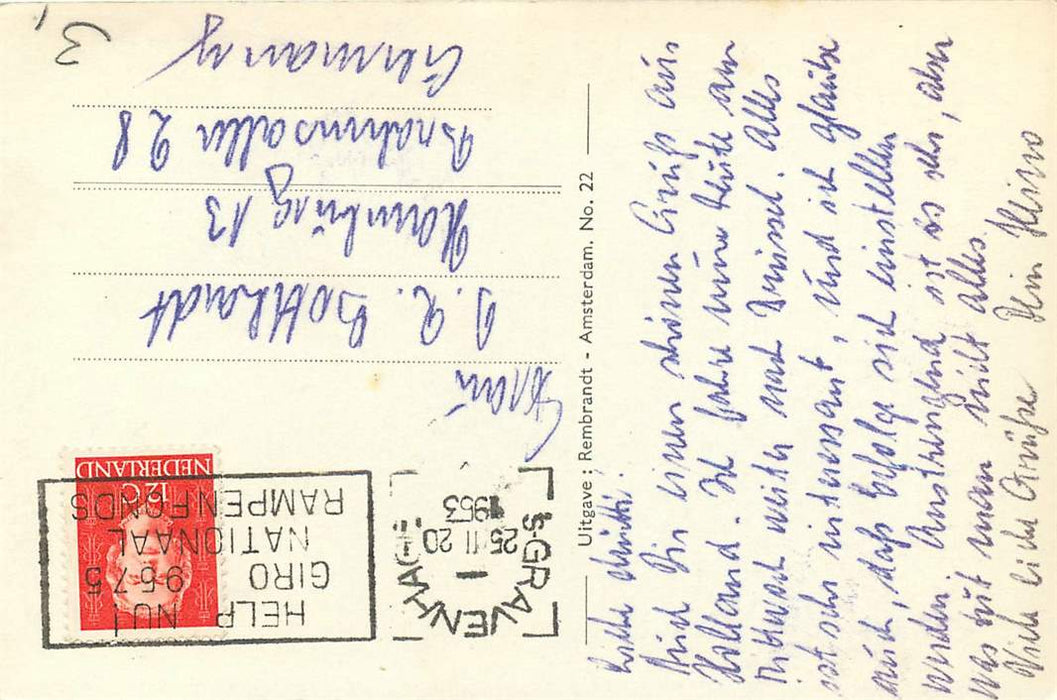 3,
NEDERLAND
12 C
HELP NU!
GIRO 9575
NATIONAAL
RAMPENFONDS
'S-GRAVENHAGE
25 II 20
1953
Frau
Hamburg 13
Brahmsallee 28
Germany
Uitgave: Rembrandt - Amsterdam. No. 22
Liebe
Auch Dir einen schönen Gruß aus
Holland. Ich fahre nun heute am
Mittwoch weiter nach Brüssel. Alles
ist sehr interessant, und ich glaube
auch, daß Erfolge sich einstellen
werden. Anstrengend ist es sehr, aber
was tut man nicht alles.
Viele liebe Grüße Dein Heino